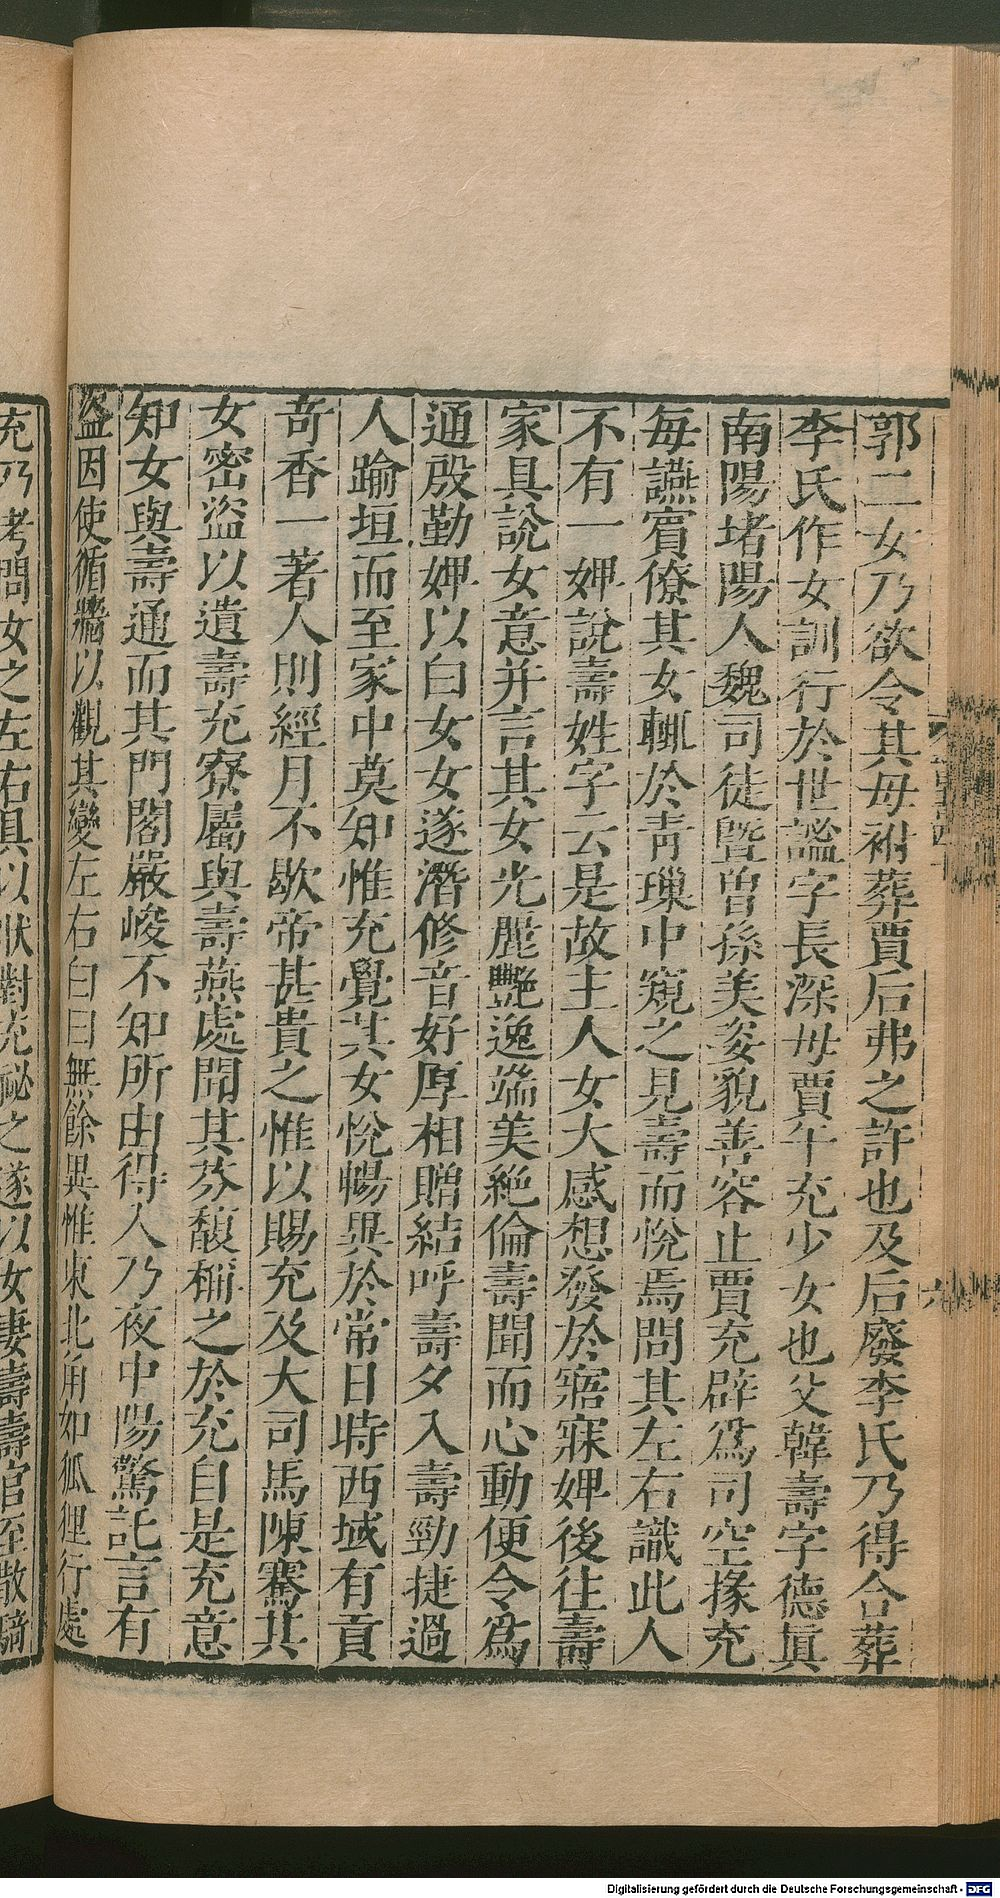 郭二女乃欲令其母祔葬賈后弗之許也及后廢李氏乃得合葬
李氏作女訓行於世謐字長深母賈午充少女也父韓壽字德眞
南陽堵陽人魏司徒曁曽孫美姿貌善容止賈充辟爲司空掾充
每讌賔僚其女輒於靑璅中窺之見壽而悅焉問其左右識此人
不有一婢說壽姓字云是故主人女大感想發於寤寐婢後往壽
家具說女意并言其女光麗艷逸端美絶倫壽聞而心動便令爲
通殷勤婢以白女女遂潛修音好厚相贈結呼壽夕入壽勁捷過
人踰垣而至家中莫知惟充覺其女悅暢異於常日時西域有貢
奇香一著人則經月不歇帝甚貴之惟以賜充及大司馬陳騫其
女密盜以遺壽充寮屬與壽燕處聞其芬馥稱之於充自是充意
知女與壽通而其門閤嚴峻不知所由得入乃夜中陽驚託言有
盜因使循牆以觀其變左右白曰無餘異惟東北角如狐狸行處
充乃考問女之左右具以狀對充祕之遂以女妻壽壽官至散騎
六
Digitalisierung gefördert durch die Deutsche Forschungsgemeinschaft - DFG